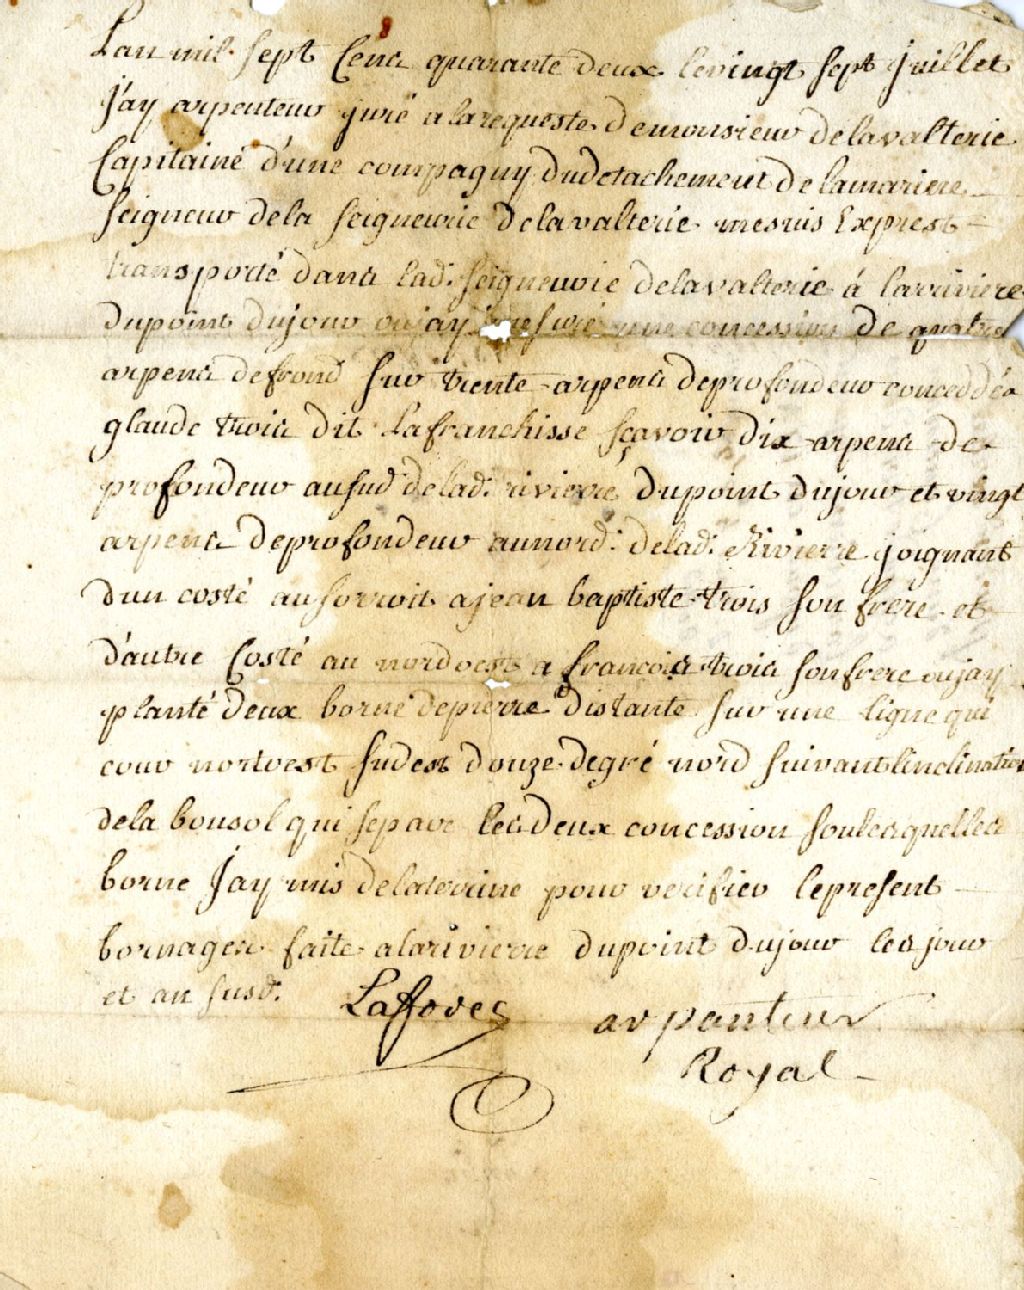 Lan mil sept Cent quarante deux le vingt sept Juillet
j'ay arpenteur juré a la requeste de monsieur de lavalterie
Capitaine d'une compagny du detachement de la mariene
seigneur de la seigneurie de lavalterie me suis Exprest
transporté dans lad. seigneurie de lavalterie á la rivierre
du point du jour ou jay mesuré une concession de quatre
arpent de frond sur trente arpent de profondeur concedé a
glaude trois dit Lafranchisse sçavoir dix arpent de
profondeur au sud de lad. rivierre du point du jour et vingt
arpent de profondeur au nord. de lad. Rivierre joignant
d'un costé au sorroit a jean baptiste trois son frere et
d'autre Costé au nordoest a francois trois son frere ou jay
planté deux borne de pierre distante sur une ligne qui
cour nortoest sudest douze degré nord suivant linclination
de la bousol qui separe les deux concession sous lesquelles
borne Jay mis de la terrine pour verifier le present
bornager faite a la rivierre du point du jour les jour
et an susd.
Lafforest arpanteur
Royal